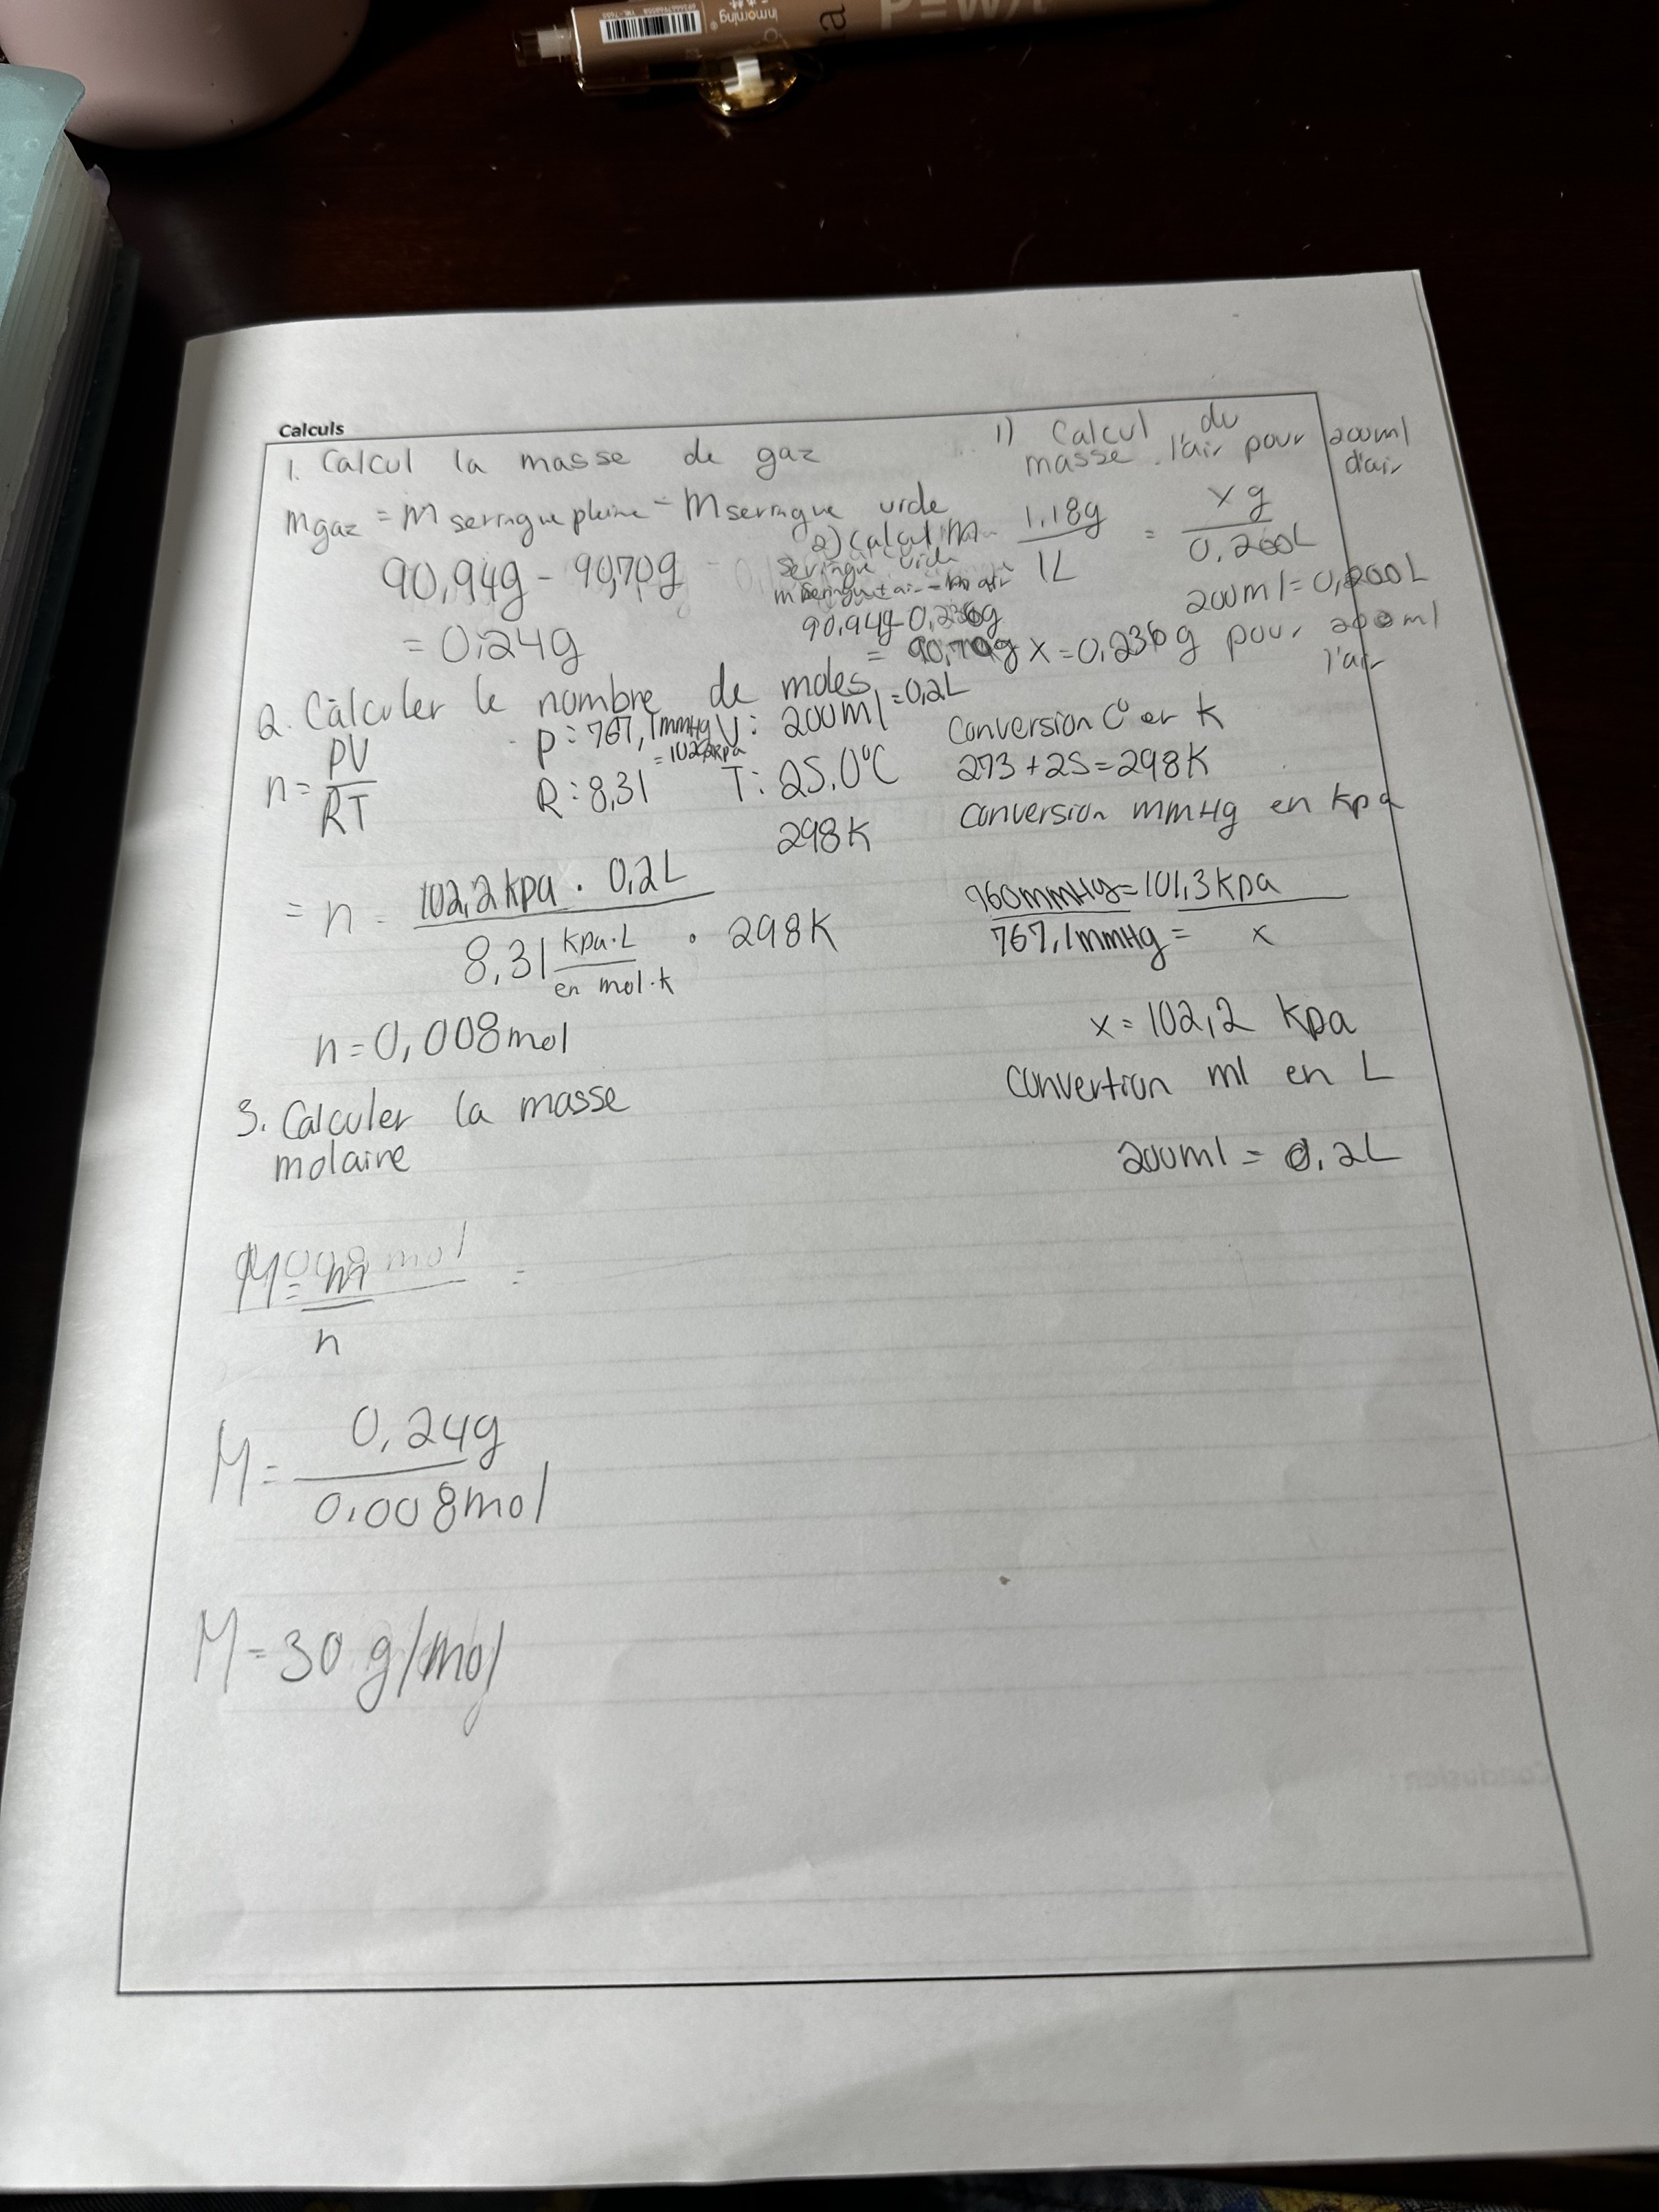 inmorning
Calculs
1. Calcul la masse de gaz
mgaz = m seringue pleine - m seringue vide
90,94g - 90,70g
= 0,24g
1) Calcul du
masse l'air pour 200ml
d'air
1,18g = x g
1L 0,200L
200ml = 0,200L
x = 0,236g pour 200ml
l'air
2) calcul m
seringue vide
m seringue + air - m air
90,94g - 0,236g
= 90,70g
2. Calculer le nombre de moles
n = PV
RT
P: 767,1 mmHg V: 200ml = 0,2L
= 102,2kpa
R: 8,31 T: 25.0°C
298K
Conversion C° en K
273 + 25 = 298K
Conversion mmHg en kpa
760mmHg = 101,3kpa
767,1mmHg = x
x = 102,2 kpa
Convertion ml en L
200ml = 0.2L
= n = 102,2kpa · 0,2L
8,31 kpa·L · 298K
en mol·k
n = 0,008mol
3. Calculer la masse
molaire
M = m
n
M = 0,24g
0.008mol
M = 30 g/mol